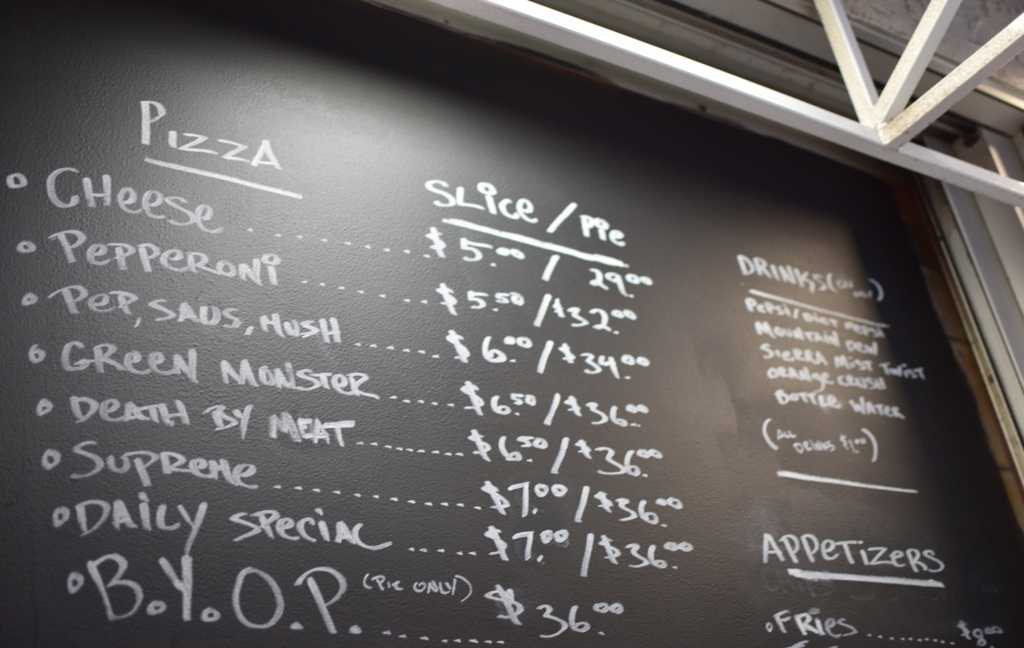 PIZZA
SLICE / PIE
• CHEESE ........ $5.00 / 29.00
• PEPPERONI ........ $5.50 / $32.00
• PEP, SAUS, MUSH ........ $6.00 / $34.00
• GREEN MONSTER ........ $6.50 / $36.00
• DEATH BY MEAT ........ $6.50 / $36.00
• SUPREME ........ $7.00 / $36.00
• DAILY SPECIAL ...... $7.00 / $36.00
• B.Y.O.P. (PIE ONLY) ...... $36.00
DRINKS
PEPSI/DIET PEPSI
MOUNTAIN DEW
SIERRA MIST TWIST
ORANGE CRUSH
BOTTLE WATER
(ALL DRINKS $1.00)
APPETIZERS
• FRIES ........ $8.00